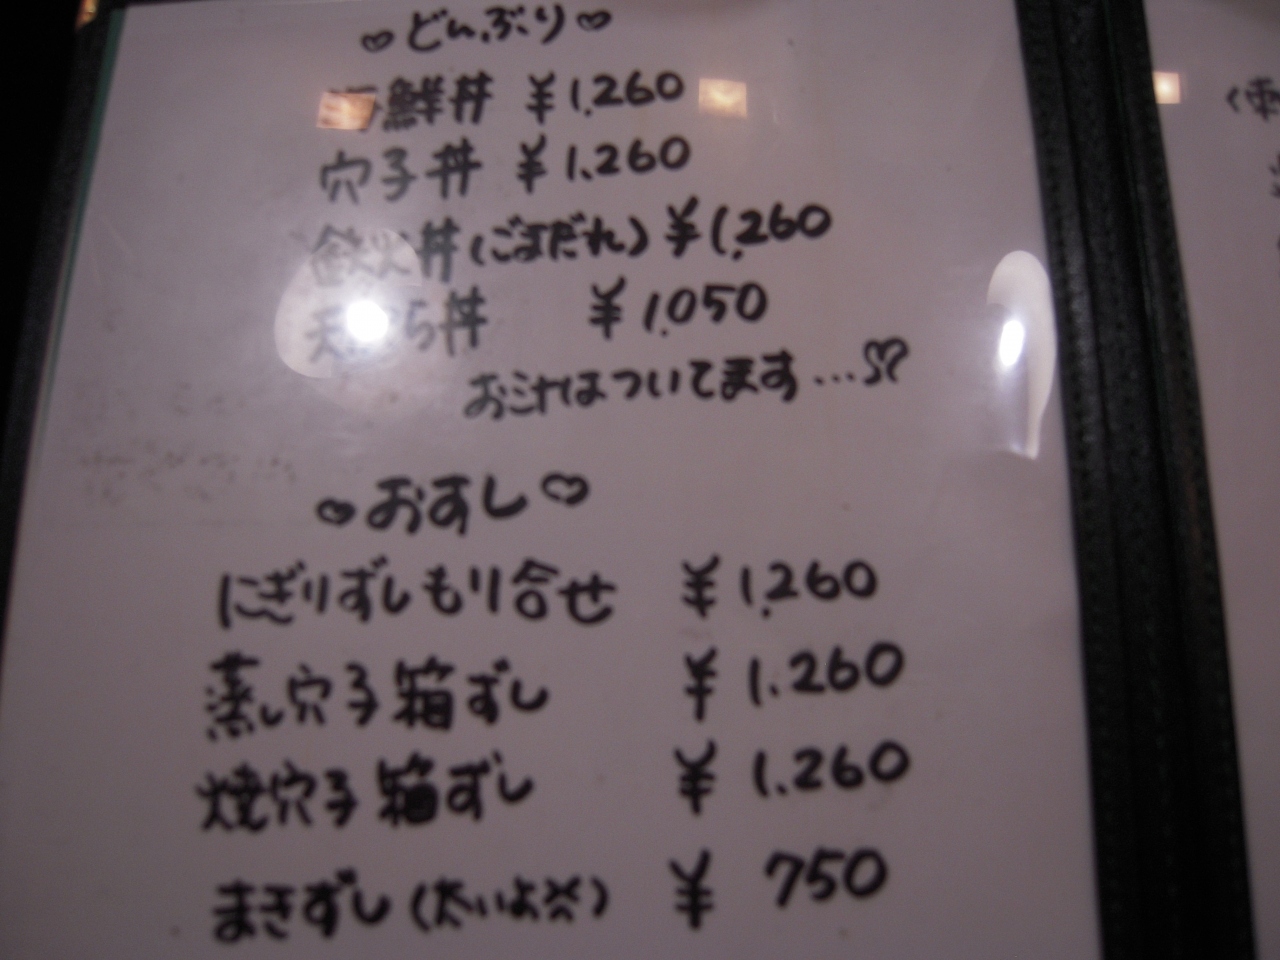 ♡どんぶり♡
海鮮丼 ¥1,260
穴子丼 ¥1.260
丼(ごまだれ) ¥1,260
天ぷら丼 ¥1,050
お汁はついてます…♡
♡おすし♡
にぎりずしもり合せ ¥1,260
蒸し穴子箱ずし ¥1.260
焼穴子箱ずし ¥1.260
まきずし(太いよ) ¥750